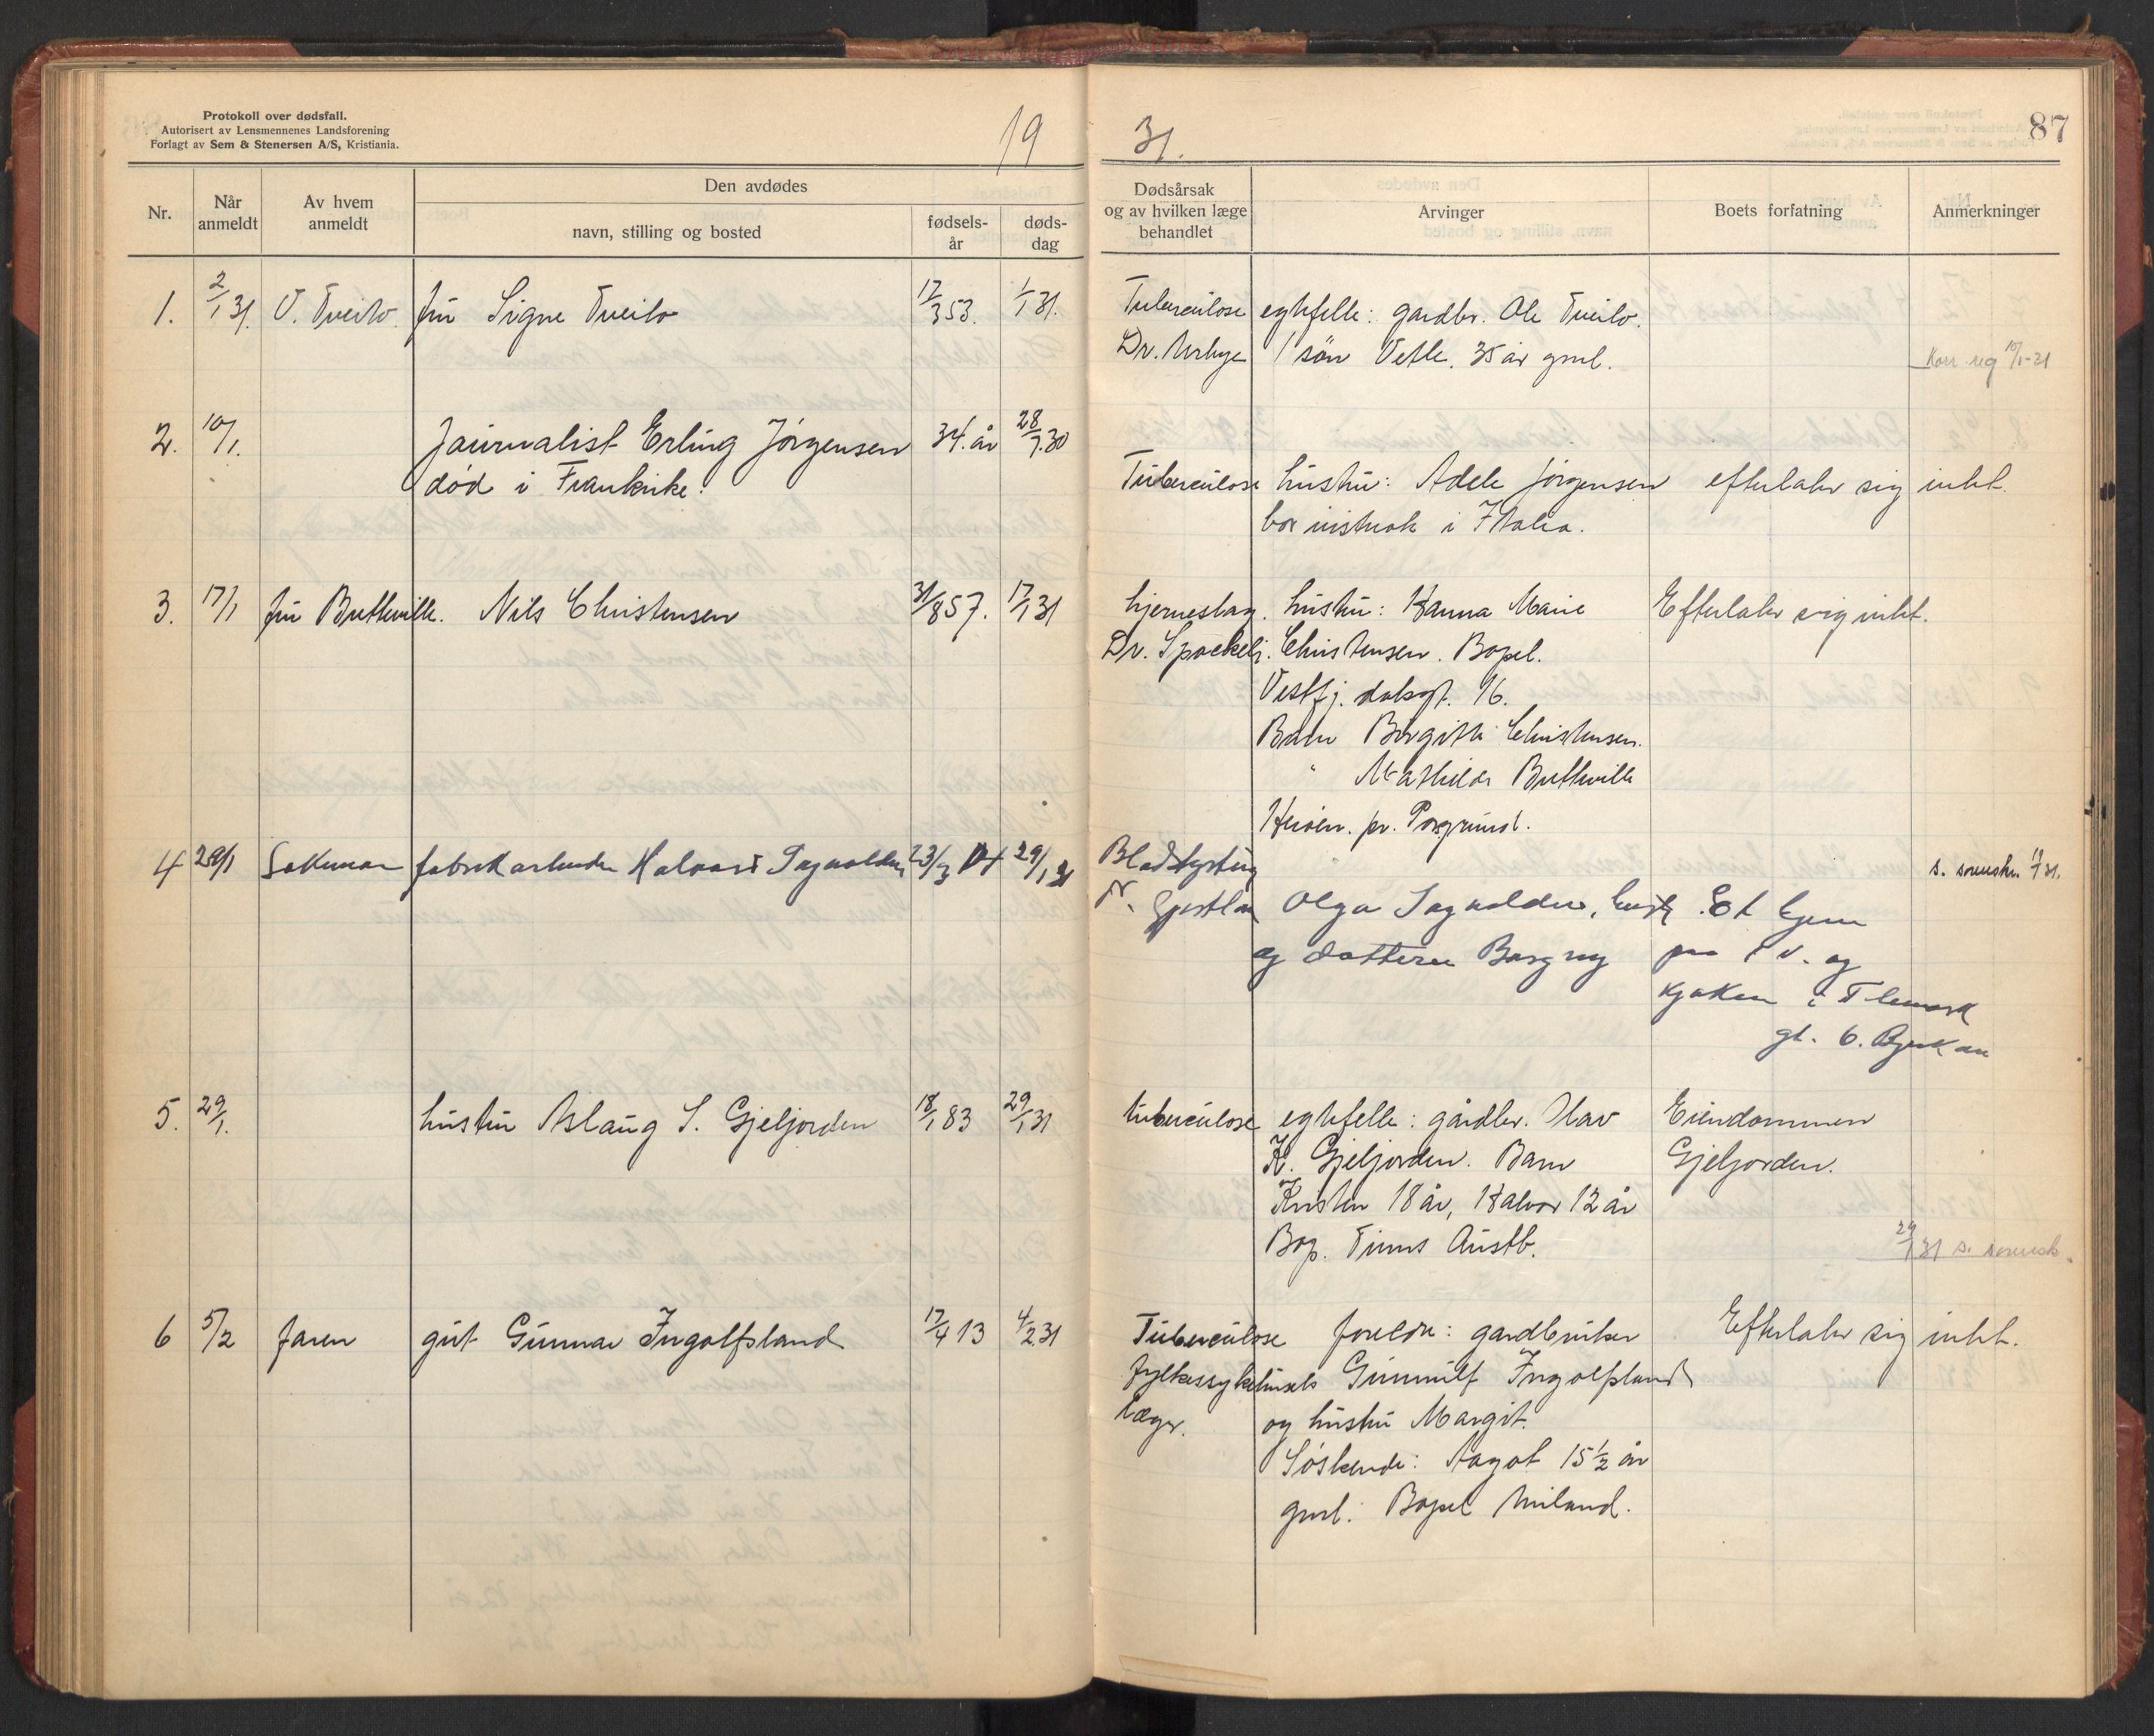 Protokoll over dødsfall.
Autorisert av Lensmennenes Landsforening
Forlagt av Sem & Stenersen A/S, Kristiania.
19
31.
87
Nr.
Når anmeldt
Av hvem anmeldt
Den avdødes
navn, stilling og bosted
fødsels-år
døds-dag
Dødsårsak og av hvilken læge behandlet
Arvinger
Boets forfatning
Anmerkninger
1. 2/1 31. V. Tveito. fru Signe Tveito 17/3 53. 1/1 31.
Tuberculose egtefelle: gardbr. Ole Tveito.
Dr. Urbye 1 søn Vetle. 35 år gml.
10/1-31
2. 10/1. Journalist Erling Jörgensen 34. år 28/7.30
død i Frankrike.
Tuberculose hustru: Adele Jörgensen efterlater sig intet.
bor i Italia.
3. 17/1 fru Butteville. Nils Christensen 31/8 57. 17/1 31
hjerneslag. hustru: Hanna Marie Efterlater sig intet.
Dr. Christensen. Bopel.
Vestfj. dalsgt. 16.
Barn Birgitte Christensen.
" Mathilde Butteville
Heröen. pr. Porsgrund.
4 29/1 fabrikarbeider Halvard 23/3 29/1 31
Olga
og datteren Borgny
kjøken i
gt. 6. Rjukan
s. sorenskr.
5. 29/1. hustru Aslaug S. Gjeljorden 18/1 83 29/1 31
tuberculose egtefelle: gårdbr. Olav Eiendommen
K. Gjeljorden. Barn Gjeljorden.
Kristen 18 år, Halvor 12 år
Bop. Tinns Austb.
29/1 31 s. sorensk.
6 5/2 faren gut Gunnar Ingolfsland 17/4 13 4/2 31
Tuberculose foreldre: gardbruker Efterlater sig intet.
fylkessykehusets Gunnulf Ingolfsland
læger. og hustru Margit.
Söskende: Aagot 15 1/2 år
gml. Bopel Miland.